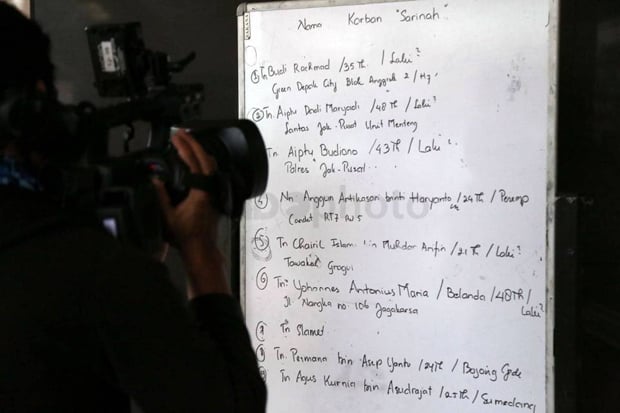 Nama Korban "Sarinah"
① Tn Budi Rachmad / 35 th / Laki²
Green Depok City Blok Anggrek 2 / H7
② Tn. Aiptu Dodi Maryadi / 48 Th / Laki²
Lantas Jak-Pusat Unit Menteng
Tn Aiptu Budiono / 43 Th / Laki²
Polres Jak-Pusat
④ Nn. Anggun Antikasari binti Haryanto / 24 Th / Peremp
Condet RT7 RW 5
⑤ Tn Chairil Islam bin Muhdar Arifin / 21 Th / Laki²
Tawakal Grogol
⑥ Tn. Yohannes Antonius Maria / Belanda / 48 Th / Laki²
Jl Nangka no 106 Jagakarsa
Tn Slamet
Tn. Permana bin Asep Yanto / 24 Th / Bojong Gede
Tn Agus Kurnia bin Asudrajat / Sumedang
abaphoto